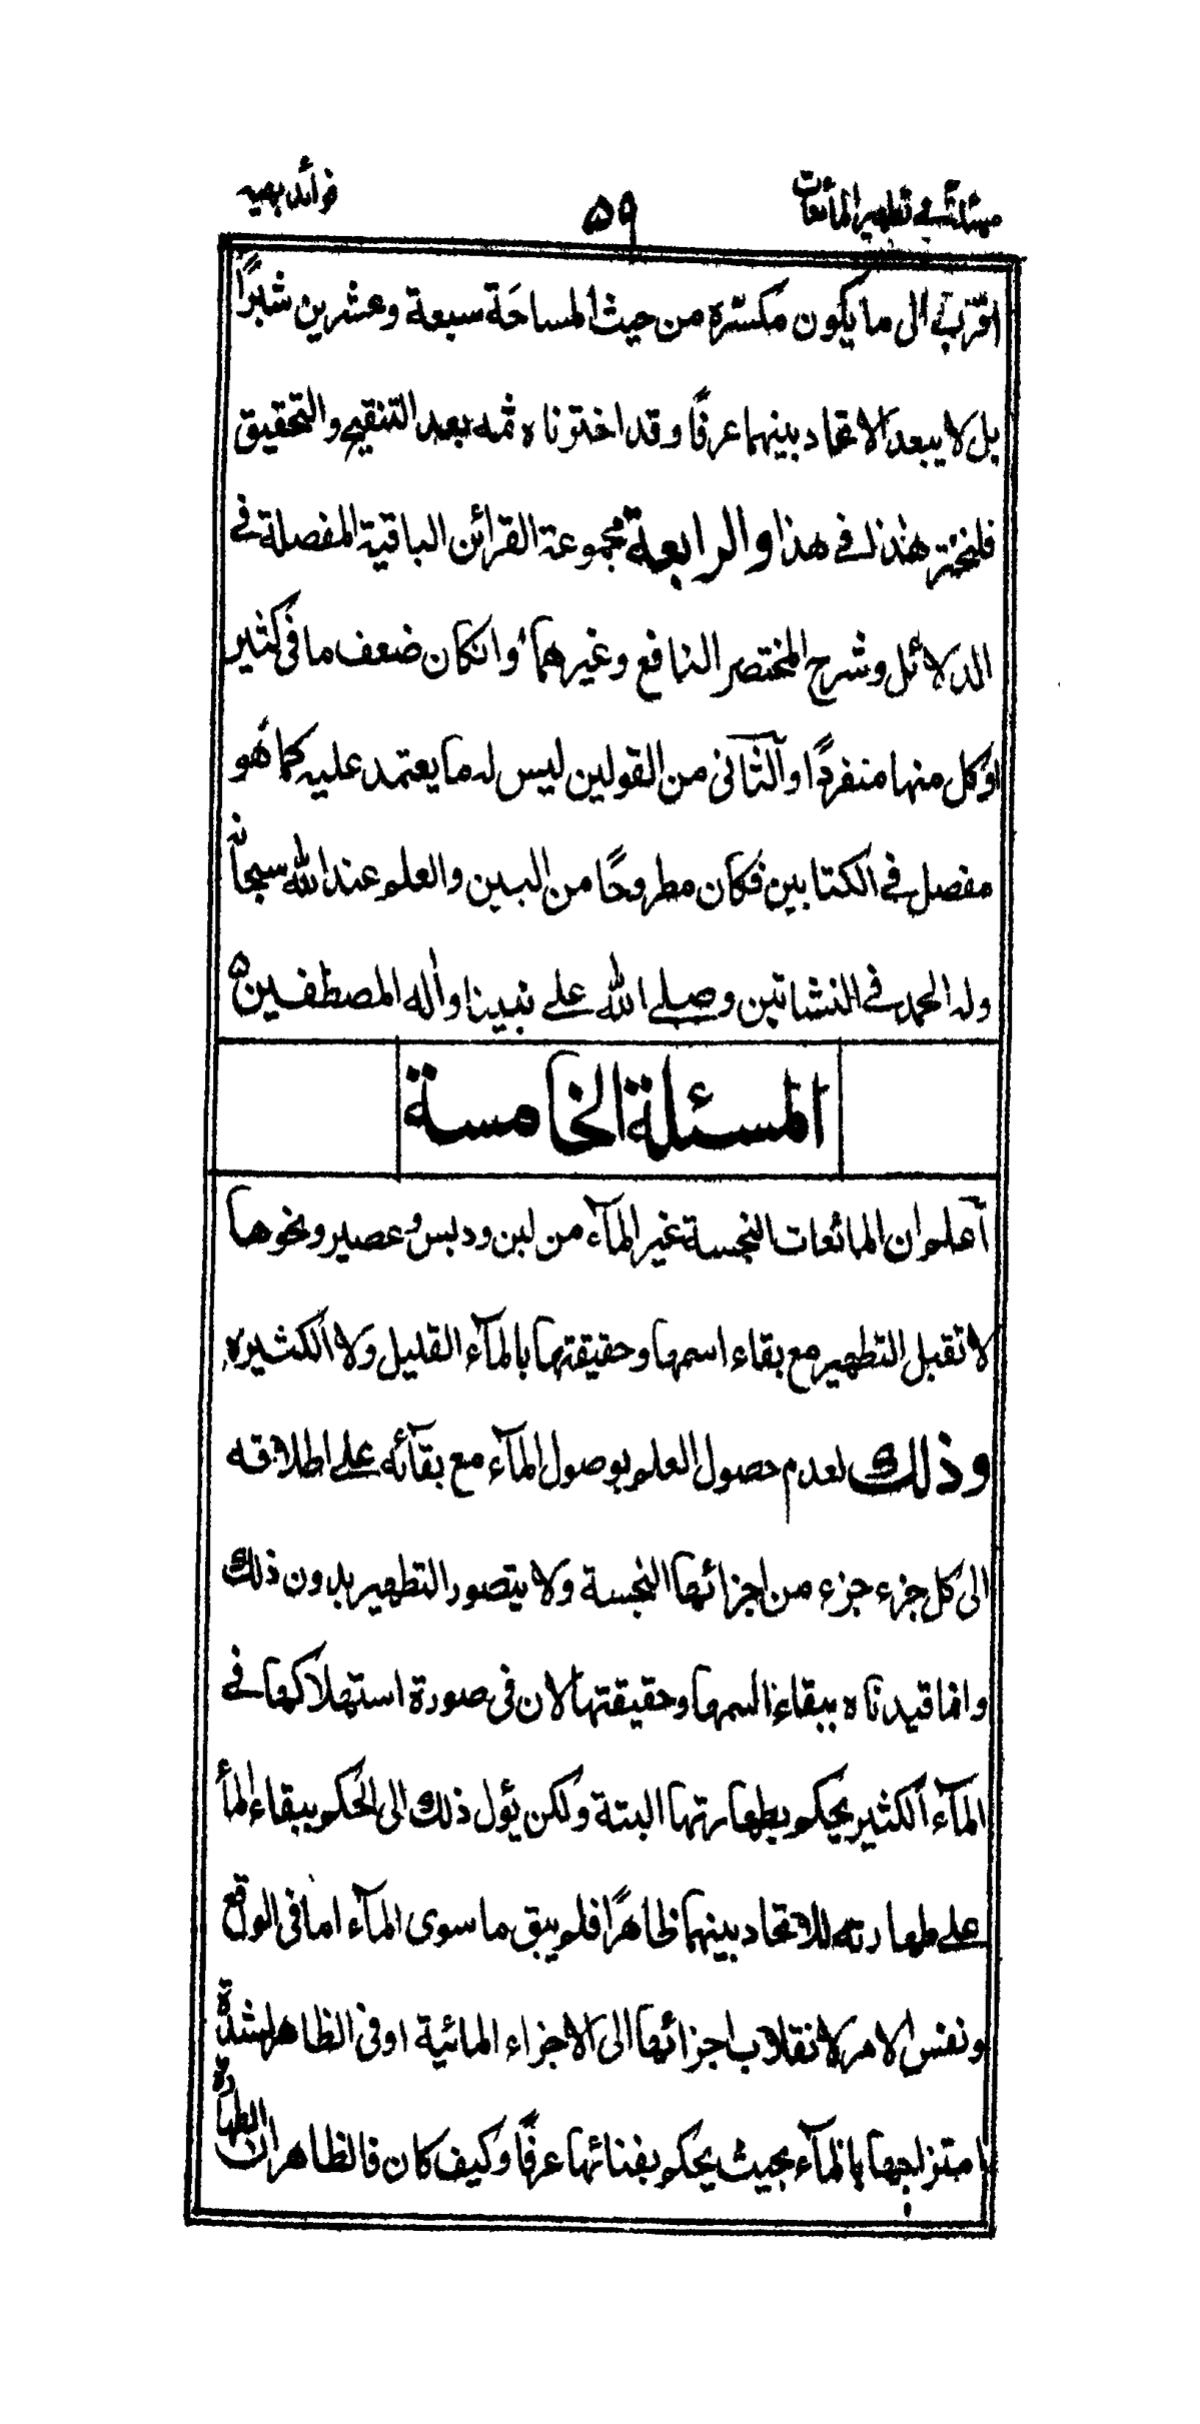 مسئلة في تطهير المائعات
۵۹
فوائد بهيه
اقرب الى ما يكون مكسّره من حيث المساحَة سبعة وعشرين شبرًا
بل لا يبعد الاتحاد بينهما عرفًا وقد اخترناه ثمه بعد التنقيح والتحقيق
فلنختر هٰذا في هذا والرابعة مجموعة القرائن الباقية المفصلة في
الدلائل وشرح المختصر النافع وغيرهما وانكان ضعف ما فى كثير
او كل منها منفردًا والثانى من القولين ليس له ما يعتمد عليه كما هو
مفصل في الكتابين فكان مطروحًا من البين والعلم عند الله سبحانه
وله الحمد في النشاتين وصلے الله علے نبينا واٰله المصطفين
المسئلة الخامسة
آعلم ان المائعات النجسة غير المآء من لبن ودبس وعصير ونحوها
لا تقبل التطهير مع بقاء اسمها وحقيقتها بالمآء القليل ولا الكثيره
وذلك لعدم حصول العلم بوصول المآء مع بقآئه علے اطلاقه
الى كل جزء جزء من اجزائها النجسة ولا يتصور التطهير بدون ذلك
وانما قيدناه ببقاء اسمها وحقيقتها لان فى صورة استهلاكها في
المآء الكثير يحكم بطهارتها البتة ولكن يؤل ذلك الى الحكم ببقاء المآء
علے طهارته للاتحاد بينهما ظاهرًا فلم يبق ما سوى المآء اما فى الواقع
ونفس الامر لانقلاب اجزائها الى الاجزاء المائية او فى الظاهر لشدة
امتزاجها بالمآء بحيث يحكم بفنائها عرفًا وكيف كان فالظاهر ان الطهارة